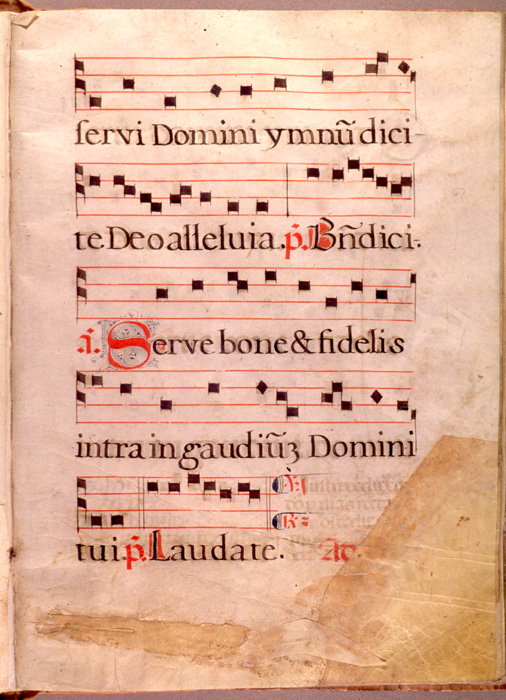 servi Domini ymnũ dici-
te Deo alleluia. p̃. Bñdici-
ã. Serve bone & fidelis
intra in gaudiũʒ Domini
tui. p̃. Laudate.